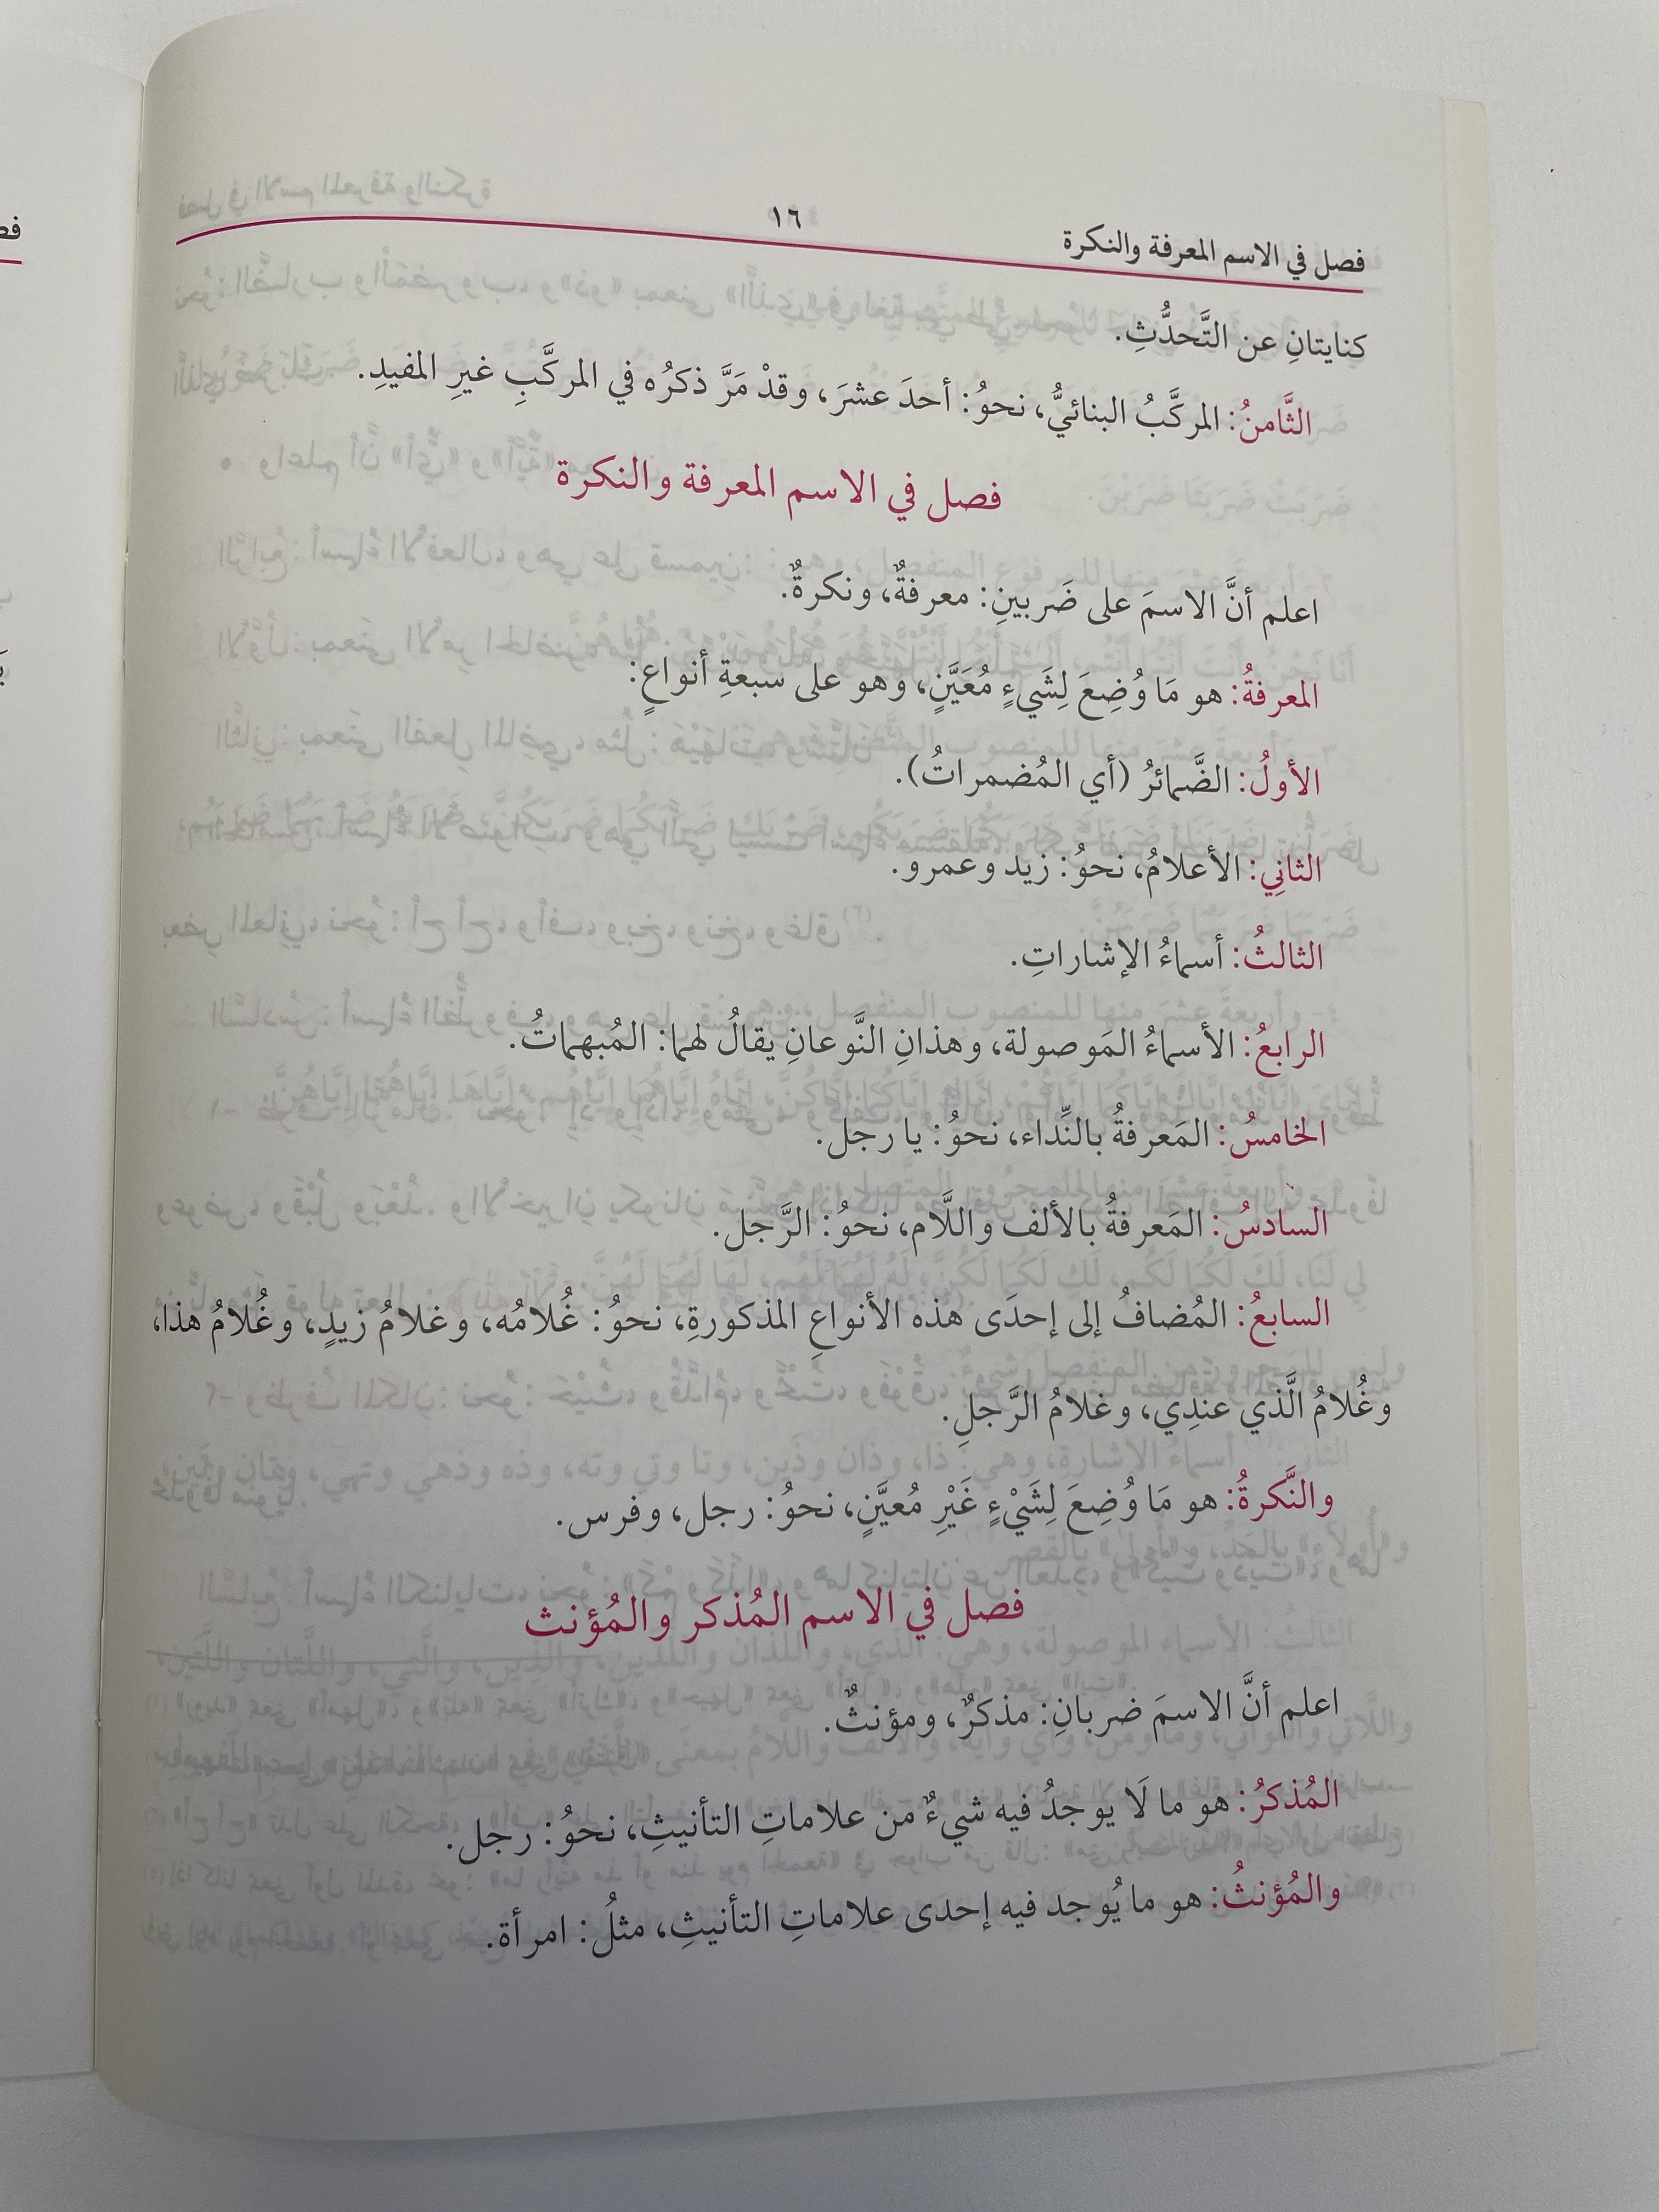 فصل في الاسم المعرفة والنكرة
١٦
كنايتانِ عن التَّحدُّثِ.
الثَّامنُ: المركَّبُ البنائيُّ، نحوُ: أحدَ عشرَ، وقدْ مَرَّ ذكرُه في المركَّبِ غيرِ المفيدِ.
فصل في الاسم المعرفة والنكرة
اعلم أنَّ الاسمَ على ضَربينِ: معرفةٌ، ونكرةٌ.
المعرفةُ: هو مَا وُضِعَ لِشَيءٍ مُعَيَّنٍ، وهو على سبعةِ أنواعٍ:
الأولُ: الضَّمائرُ (أي المُضمراتُ).
الثانِي: الأعلامُ، نحوُ: زيد وعمرو.
الثالثُ: أسماءُ الإشاراتِ.
الرابعُ: الأسماءُ المَوصولة، وهذانِ النَّوعانِ يقالُ لهما: المُبهماتُ.
الخامسُ: المَعرفةُ بالنِّداء، نحوُ: يا رجل.
السادسُ: المَعرفةُ بالألف واللَّام، نحوُ: الرَّجل.
السابعُ: المُضافُ إلى إحدَى هذه الأنواعِ المذكورةِ، نحوُ: غُلامُه، وغلامُ زيدٍ، وغُلامُ هذا،
وغُلامُ الَّذي عندِي، وغلامُ الرَّجلِ.
والنَّكرةُ: هو مَا وُضِعَ لِشَيْءٍ غَيْرِ مُعيَّنٍ، نحوُ: رجل، وفرس.
فصل في الاسم المُذكر والمُؤنث
اعلم أنَّ الاسمَ ضربانِ: مذكرٌ، ومؤنثٌ.
المُذكرُ: هو ما لَا يوجدُ فيه شيءٌ من علاماتِ التأنيثِ، نحوُ: رجل.
والمُؤنثُ: هو ما يُوجد فيه إحدى علاماتِ التأنيثِ، مثلُ: امرأة.